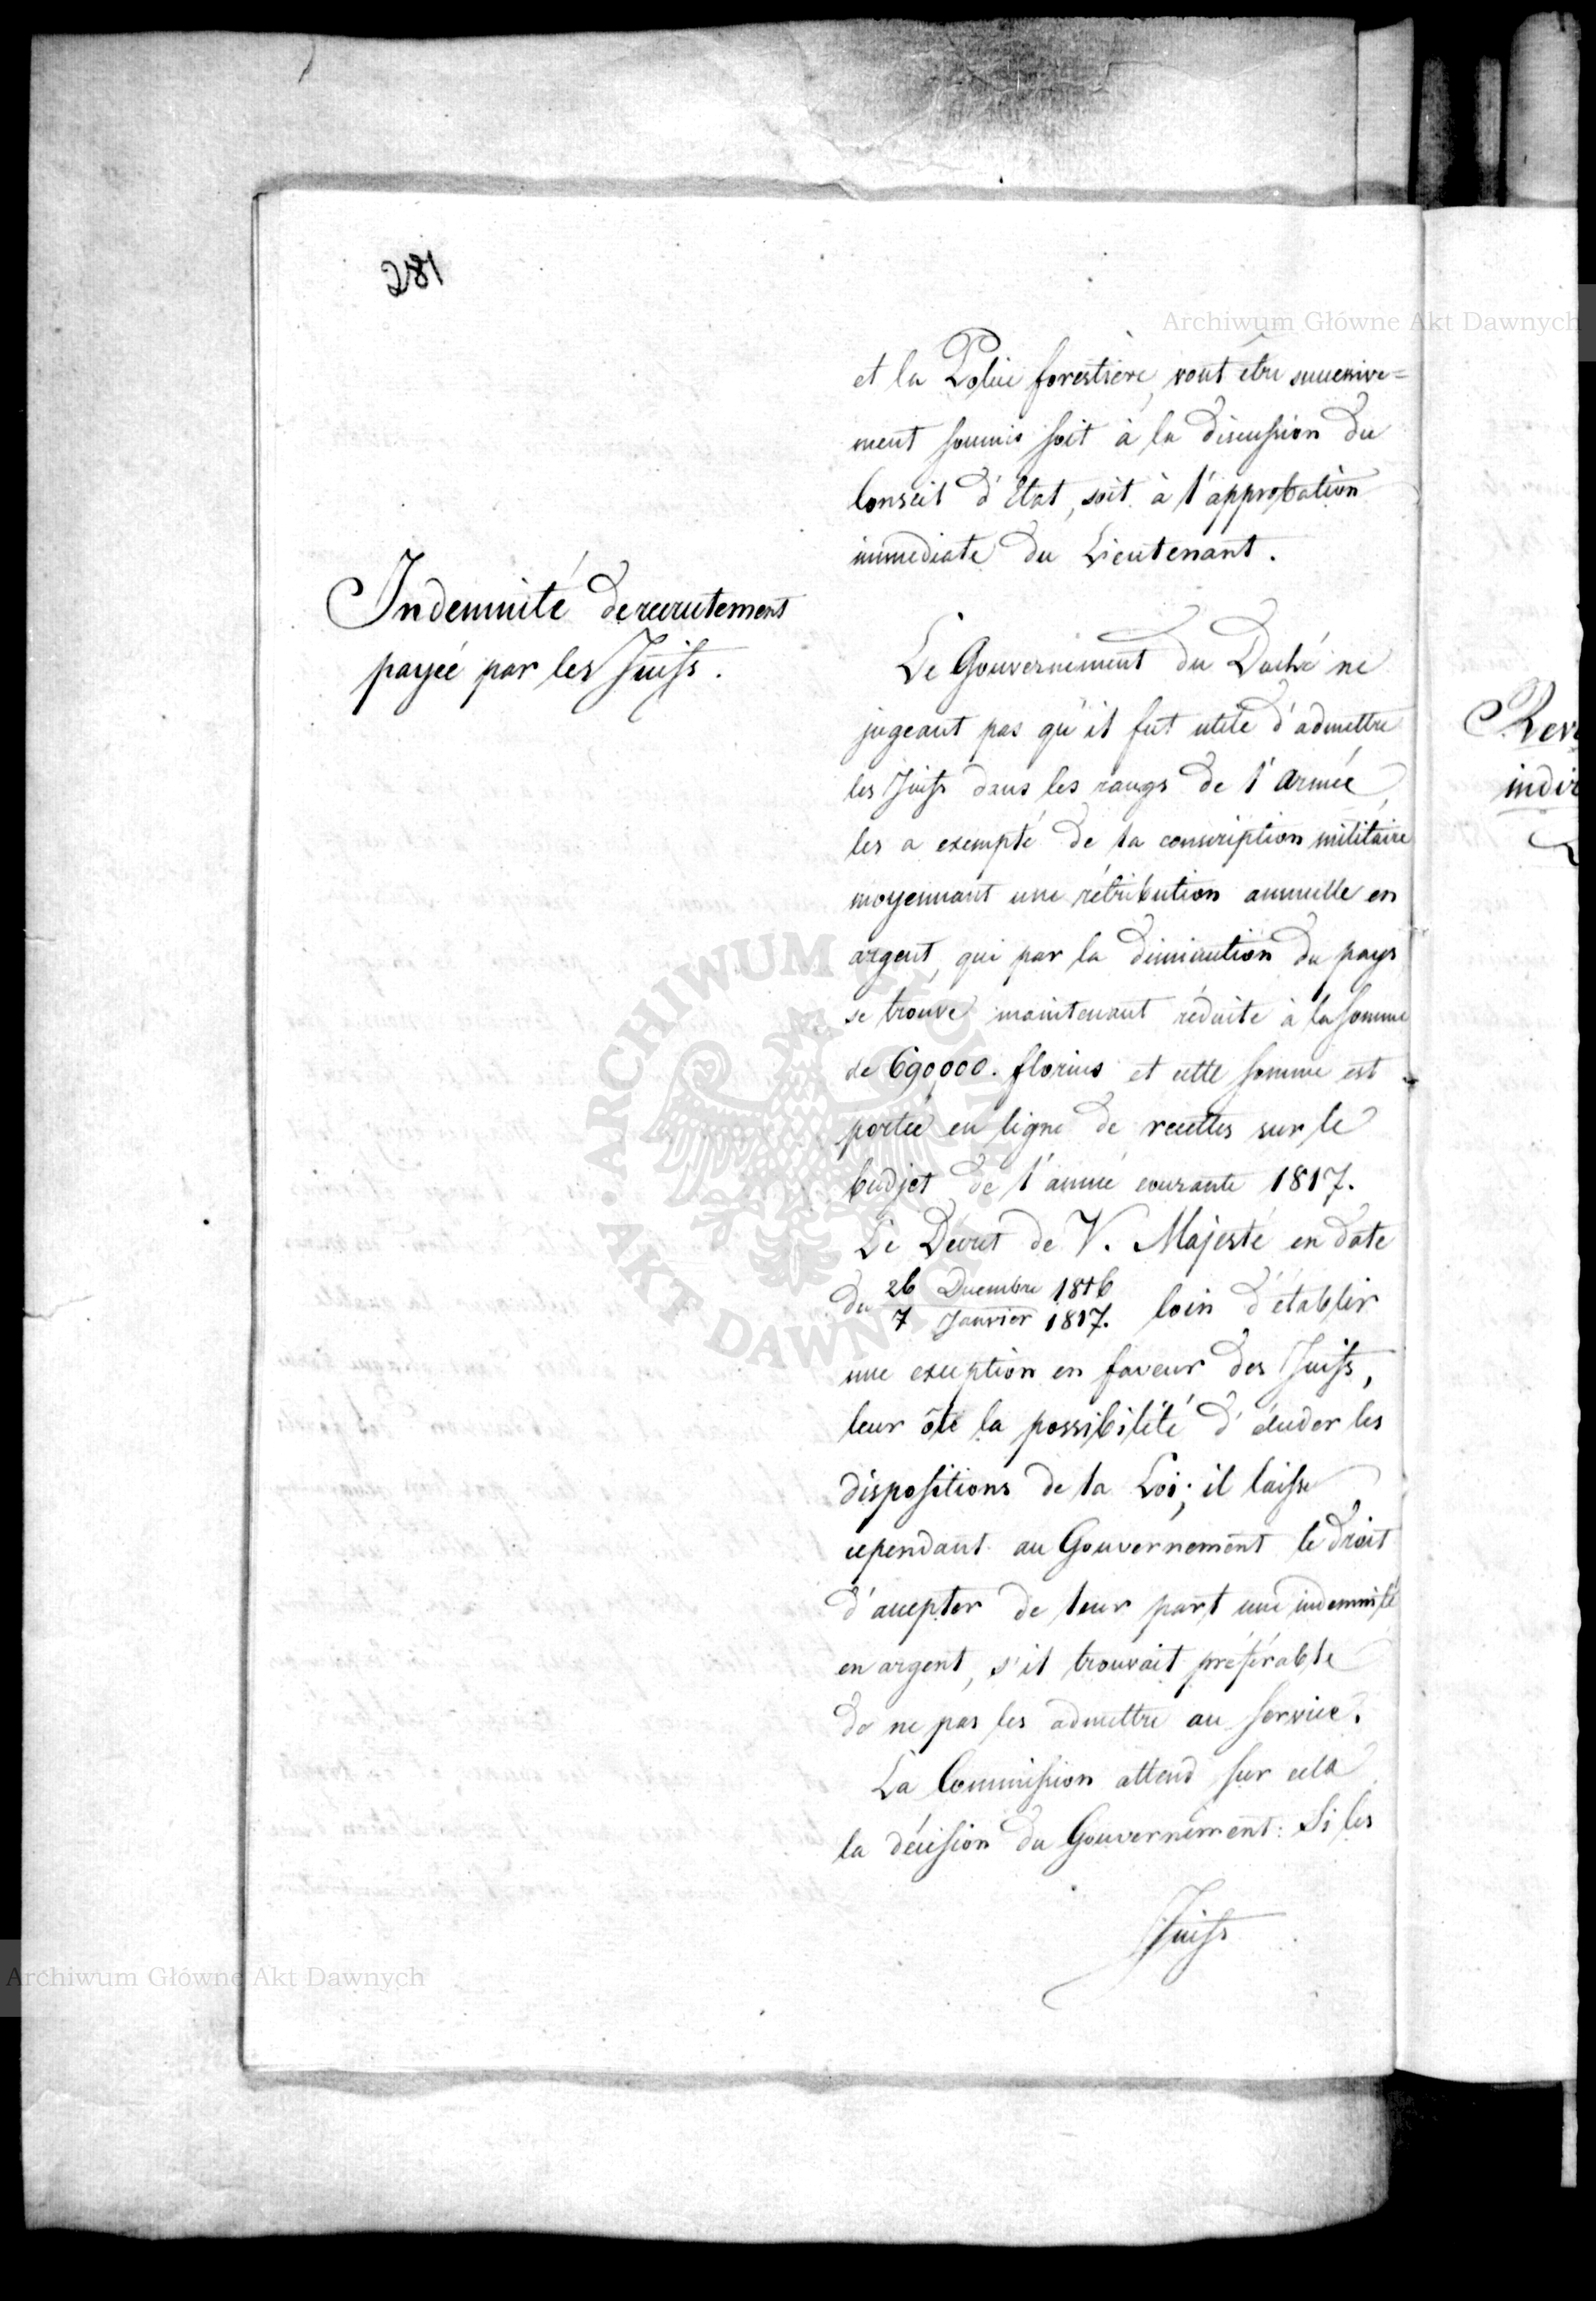 281
Archiwum Główne Akt Dawnych
et la Police forestière, vont être successive=
ment soumis soit à la discussion du
Conseil d'Etat, soit à l'approbation
immediate du Lieutenant.
Indemnité de recrutement
payée par les Juifs.
Le Gouvernement du Duché ne
jugeant pas qu'il fut utile d'admettre
les Juifs dans les rangs de l'Armée,
les a exempté de la conscription militaire
moyennant une rétribution annuelle en
argent, qui par la diminution du pays
se trouve maintenant réduite à la somme
de 690,000. florins et cette somme est
portée en ligne de recettes sur le
budjet de l'année courante 1817.
Le Décret de V. Majesté en date
du 26 Decembre 1816 / 7 Janvier 1817. loin d'établir
une exception en faveur des Juifs,
leur ôte la possibilité d'éluder les
dispositions de la Loi; il laisse
cependant au Gouvernement le droit
d'accepter de leur part une indemnité
en argent, s'il trouvait préférable
de ne pas les admettre au service.
La Commission attend sur cela
la décision du Gouvernement: Si les
Juifs
Rev
indir
ARCHIWUM GŁÓWNE AKT DAWNYCH
Archiwum Główne Akt Dawnych